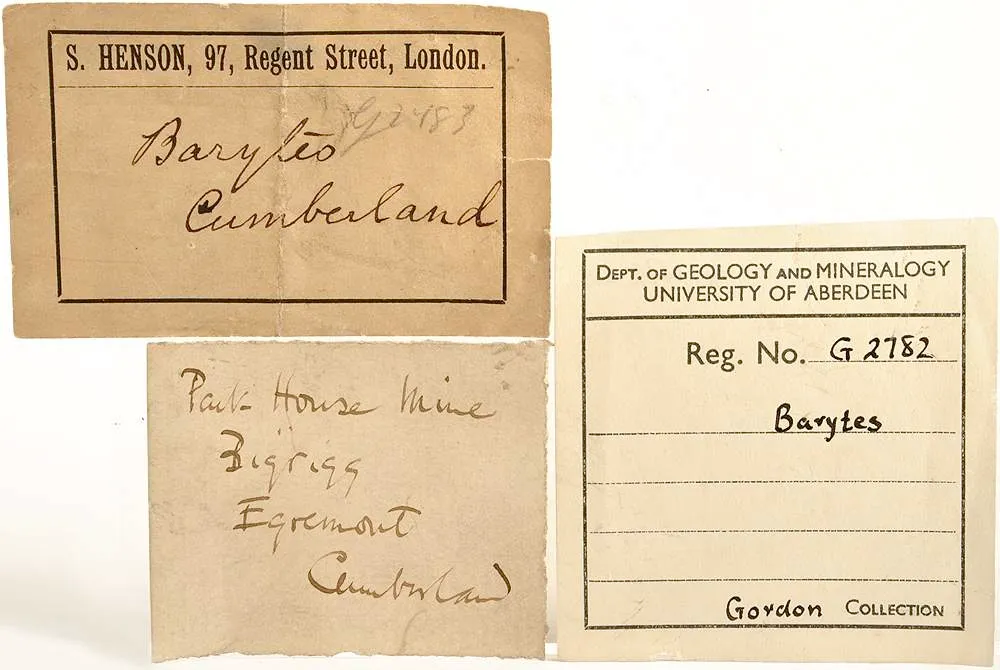 S. HENSON, 97, Regent Street, London.
Barytes
Cumberland
Park House Mine
Bigrigg
Egremont
Cumberland
DEPT. OF GEOLOGY AND MINERALOGY
UNIVERSITY OF ABERDEEN
Reg. No. G 2782
Barytes
Gordon COLLECTION